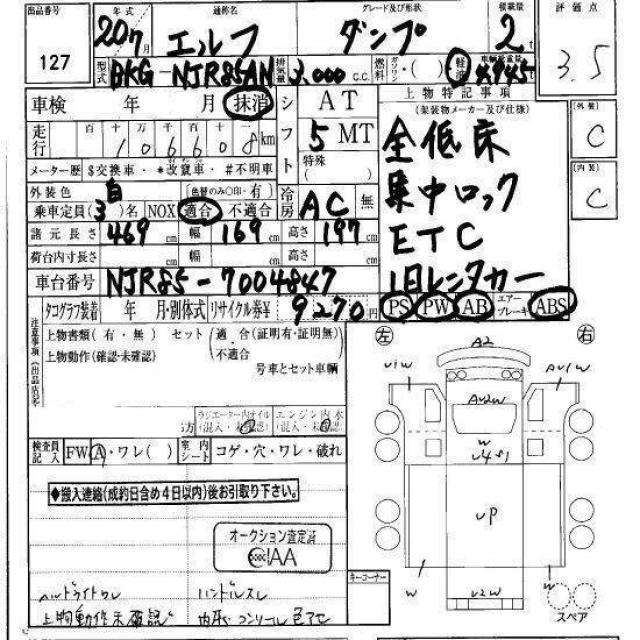 出品番号 127
年式 20 7月
通称名 エルフ
グレード及び形状 ダンプ
積載量 2 t
評価点 3.5
型式 BKG-NJR85AN
排気量 3,000 C.C.
燃料 ガソリン・( ) 軽油
車検 年 月 抹消
シフト AT
5 MT
特殊
( )
上物特記事項
(架装物メーカー及び仕様)
全低床
集中ロック
ETC
1日レンタカー
外装 C
内装 C
走行 百 十 万 千 百 十
106608 km
メーター歴・$交換車・*改竄車・#不明車
外装色 白 (色替のみ○印・有)
冷房 AC 無
乗車定員(3)名 NOX 適合 不適合
諸元長さ 469 cm 幅 169 cm 高さ 197 cm
荷台内寸長さ cm 幅 cm 高さ cm
車台番号 NJR85-7004847
タコグラフ装着 年 月・別体式 リサイクル券¥ 9270円
PS PW AB エアーブレーキ ABS
注意事項
上物書類(有・無) セット 適合(証明有・証明無)
・不適合
上物動作(確認・未確認)
号車とセット車輌
ラジエーター内オイル (混入・未確認)
エンジン内水 (混入・未確認)
検査員記入 FW A・ワレ( ) 室内シート コゲ・穴・ワレ・破れ
◆搬入連絡(成約日含め4日以内)後お引取り下さい。
オークション査定済
IAA
ハンドルスレ
上物動作未確認
キーコーナー
左 右
A2
U1W
AU1W
AU2W
W
U4S1
UP
W
U2W
W
スペア